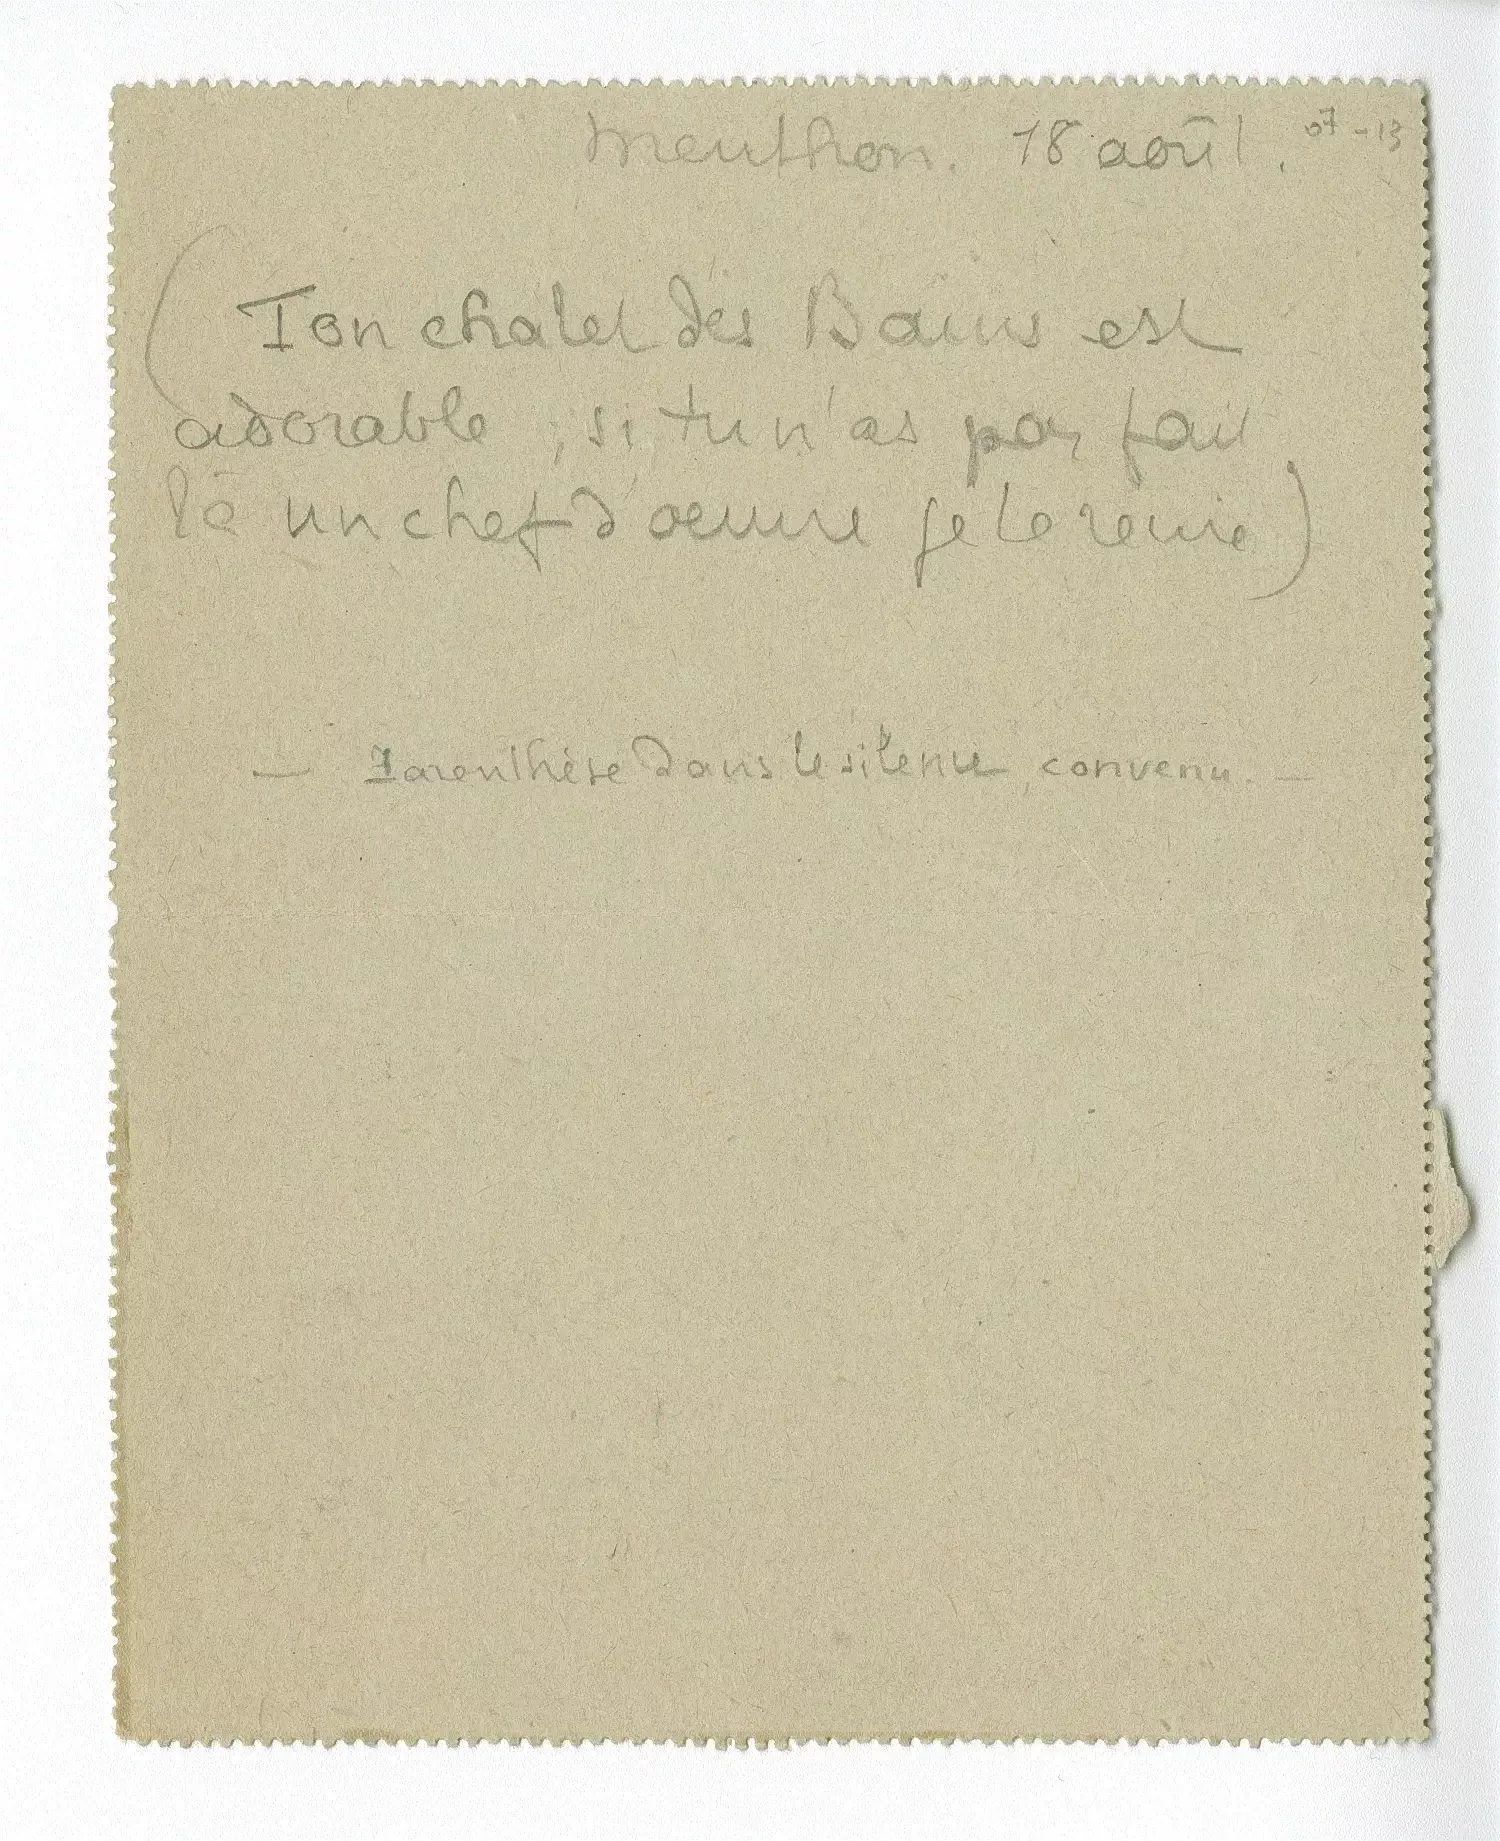 Menthon. 18 août. 07-13
(Ton chalet des Bains est
adorable ; si tu n'as pas fait
là un chef d'oeuvre je te renie)
— Parenthèse dans le silence convenu. —